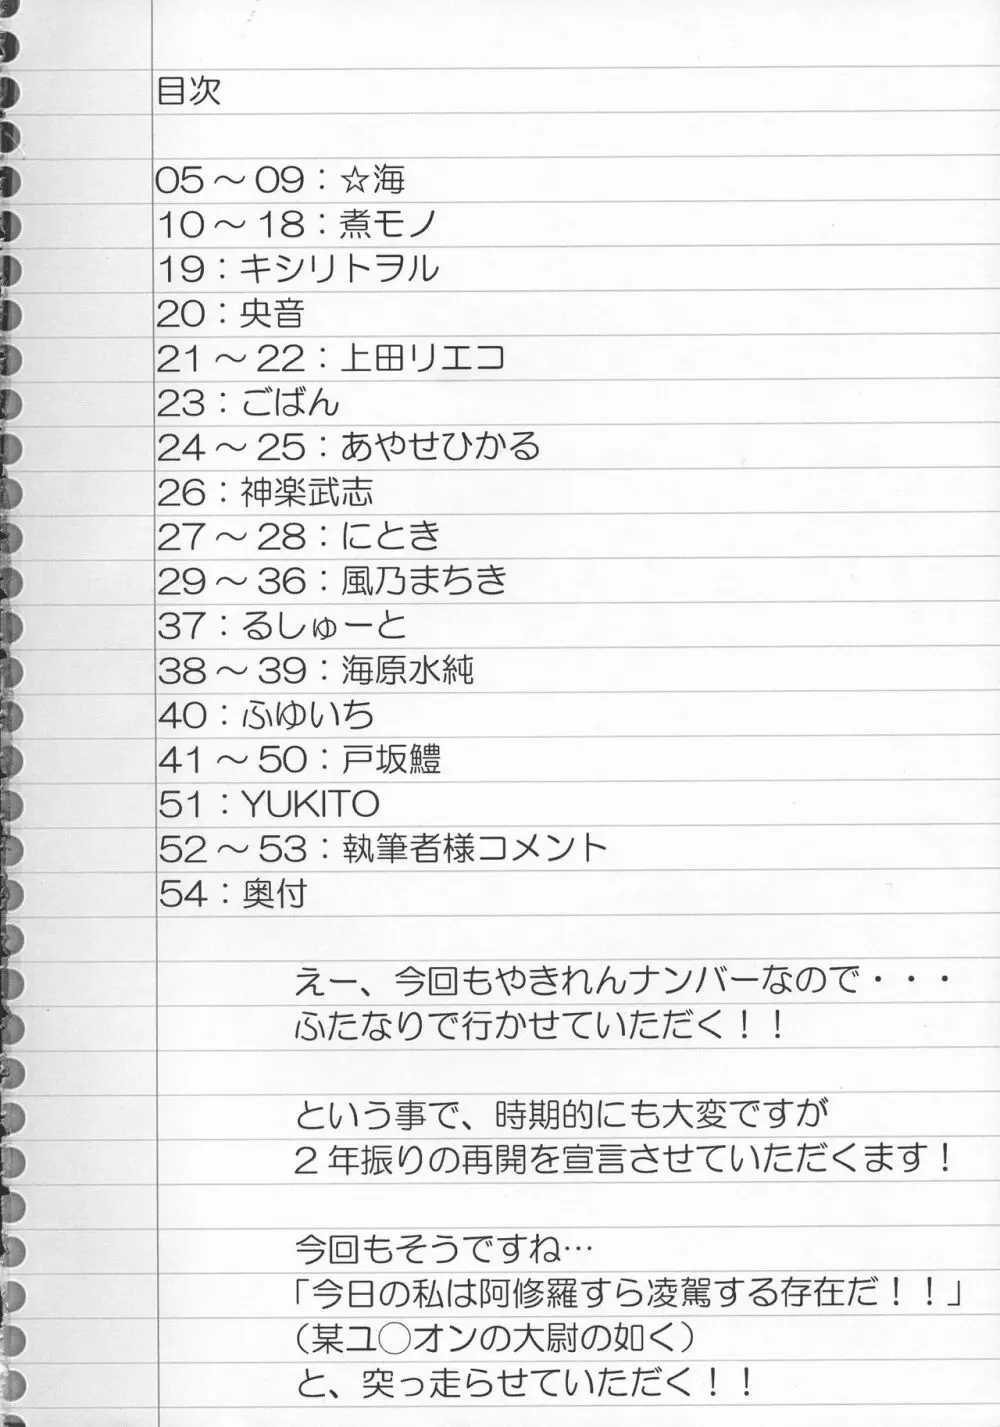 目次
05～09：☆海
10～18：煮モノ
19：キシリトヲル
20：央音
21～22：上田リエコ
23：ごばん
24～25：あやせひかる
26：神楽武志
27～28：にとき
29～36：風乃まちき
37：るしゅーと
38～39：海原水純
40：ふゆいち
41～50：戸坂鱧
51：YUKITO
52～53：執筆者様コメント
54：奥付
えー、今回もやきれんナンバーなので・・・
ふたなりで行かせていただく！！
という事で、時期的にも大変ですが
2年振りの再開を宣言させていただくます！
今回もそうですね…
「今日の私は阿修羅すら凌駕する存在だ！！」
（某ユ◯オンの大尉の如く）
と、突っ走らせていただく！！